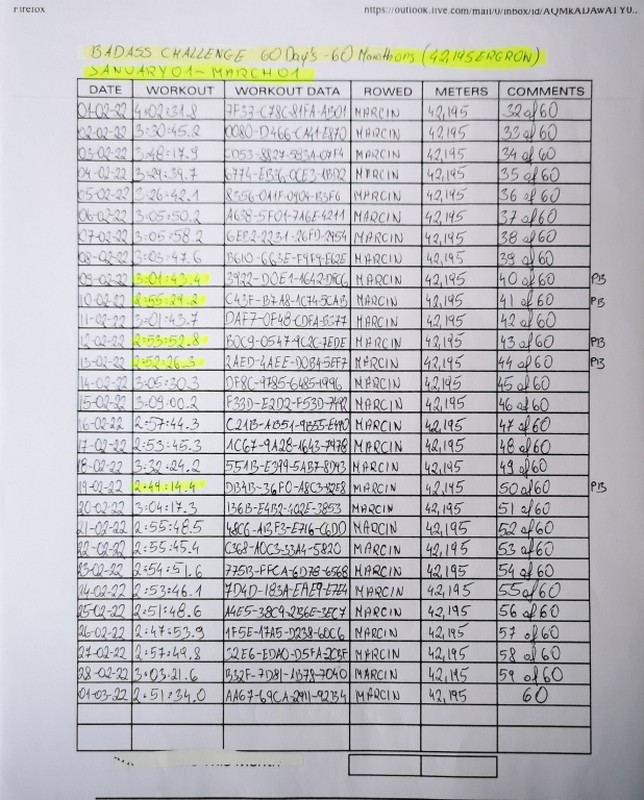 Firefox https://outlook.live.com/mail/0/inbox/id/AQMKADAWATY0..
BADASS CHALLENGE 60 Day's - 60 Marathons (42,195 ERGROW)
JANUARY 01 - MARCH 01
DATE WORKOUT WORKOUT DATA ROWED METERS COMMENTS
01-02-22 4:02:31.8 7F33-C78C-81FA-AB01 MARCIN 42,195 32 of 60
02-02-22 3:30:45.2 0080-D466-CA41-E870 MARCIN 42,195 33 of 60
03-02-22 3:48:17.9 CD53-8827-583A-07F4 MARCIN 42,195 34 of 60
04-02-22 3:29:39.7 6774-EB36-0CE3-1BD2 MARCIN 42,195 35 of 60
05-02-22 3:26:42.1 8356-0A1F-0904-B3F6 MARCIN 42,195 36 of 60
06-02-22 3:05:50.2 A638-5F01-7A6E-4211 MARCIN 42,195 37 of 60
07-02-22 3:05:58.2 6EB2-2231-26FD-2954 MARCIN 42,195 38 of 60
08-02-22 3:03:47.6 B610-663E-F9F4-E62E MARCIN 42,195 39 of 60
09-02-22 3:01:43.4 3922-D0E1-1642-D8C6 MARCIN 42,195 40 of 60 PB
10-02-22 2:55:29.2 C43F-B7A8-1C74-5CAB MARCIN 42,195 41 of 60 PB
11-02-22 3:01:43.7 DAF7-0F48-CDFA-5377 MARCIN 42,195 42 of 60
12-02-22 2:53:52.8 B0C9-0547-9C2C-7EDE MARCIN 42,195 43 of 60 PB
13-02-22 2:52:26.3 2AED-4AEE-D0B4-5EF7 MARCIN 42,195 44 of 60 PB
14-02-22 3:05:30.3 DF8C-9785-6485-1996 MARCIN 42,195 45 of 60
15-02-22 3:09:00.2 F33D-E2D2-F53D-7492 MARCIN 42,195 46 of 60
16-02-22 2:57:44.3 C21B-AB51-9B55-E440 MARCIN 42,195 47 of 60
17-02-22 2:53:45.3 1C67-9A28-1643-7478 MARCIN 42,195 48 of 60
18-02-22 3:32:24.2 551B-E399-5AB7-8D43 MARCIN 42,195 49 of 60
19-02-22 2:49:14.4 DB4B-36F0-A8C3-B2E8 MARCIN 42,195 50 of 60 PB
20-02-22 3:04:17.3 136B-E4B2-402E-3853 MARCIN 42,195 51 of 60
21-02-22 2:55:48.5 48C6-A1BF3-E716-C6DD MARCIN 42,195 52 of 60
22-02-22 2:55:45.4 C368-A0C3-33A4-5820 MARCIN 42,195 53 of 60
23-02-22 2:54:51.6 775B-FFCA-6D78-6568 MARCIN 42,195 54 of 60
24-02-22 2:53:46.1 7D4D-183A-EAE9-E7E4 MARCIN 42,195 55 of 60
25-02-22 2:51:48.6 A4E5-38C9-2B6E-3EC7 MARCIN 42,195 56 of 60
26-02-22 2:47:53.9 1F5E-17A5-D238-60C6 MARCIN 42,195 57 of 60
27-02-22 2:57:49.8 32E6-EDA0-D5FA-2C5F MARCIN 42,195 58 of 60
28-02-22 3:03:21.6 B32F-7D81-AB78-7040 MARCIN 42,195 59 of 60
01-03-22 2:51:34.0 AA67-69CA-2911-92B4 MARCIN 42,195 60